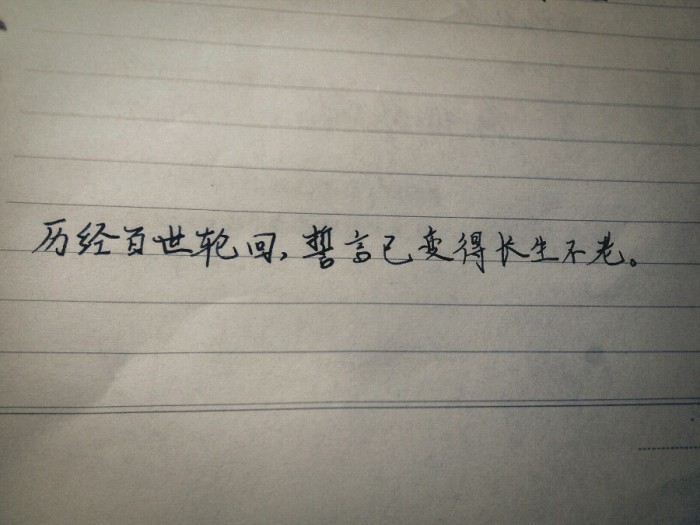 历经百世轮回,誓言已变得长生不老。